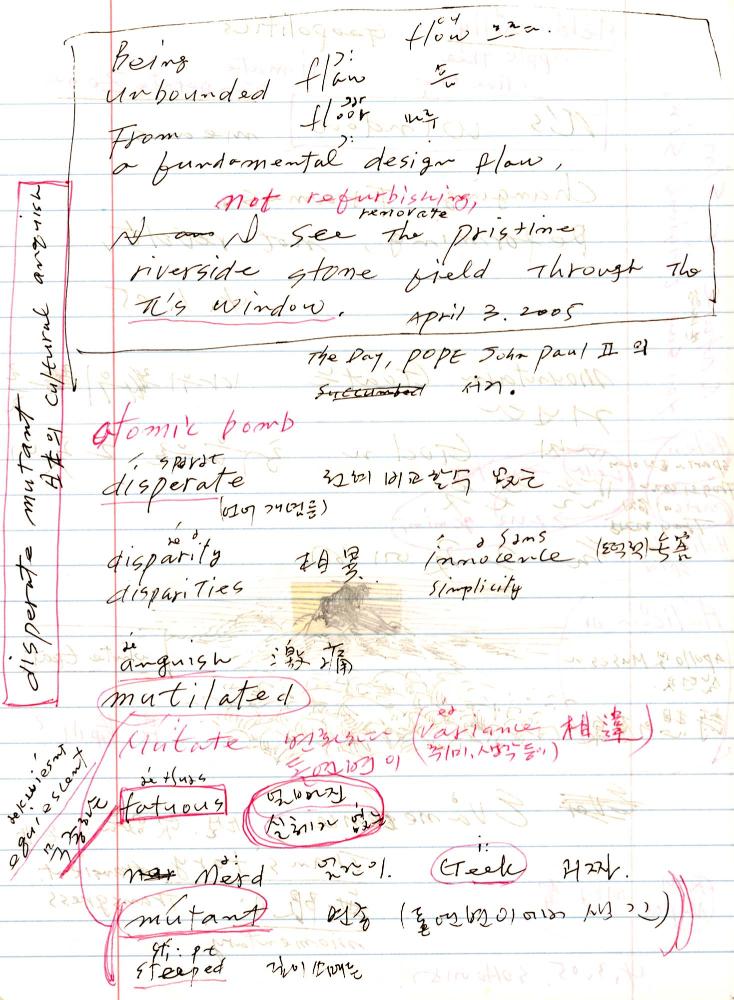 flow 흐르다.
Being
flaw 흠
unbounded
floor 마루
From
a fundamental design flaw,
not refurbishing,
renovate
N See The pristine
riverside stone field Through The
π's window.
April 3. 2005
The Day, POPE John Paul II 의
Succumbed 서거.
atomic bomb
disperate 전혀 비교할수 없는
(언어 개념들)
disparity 相異 innocence
disparities simplicity
anguish 激痛
mutilated
Mutate 변화하다 (variance 相違)
돌연변이 (취미, 생각들이)
fatuous 얼빠진
실체가 없는
Nerd 얼간이. Geek 괴짜.
mutant 변종 (돌연변이에서 생긴)
steeped
disperate mutant
의 cultural anguish
aquiescent
묵종하는